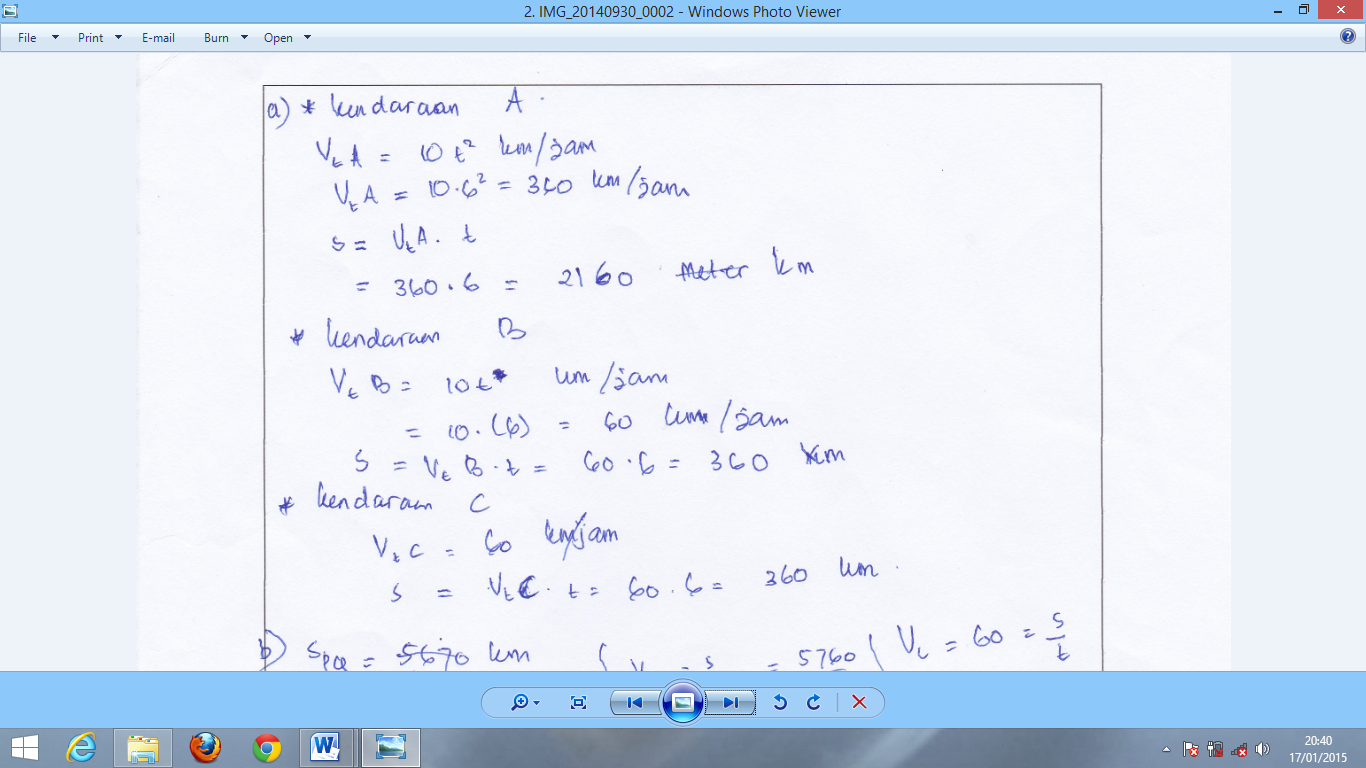 2. IMG_20140930_0002 - Windows Photo Viewer
File Print E-mail Burn Open
a) * kendaraan A
VtA = 10 t² km/jam
VtA = 10·6² = 360 km/jam
s = VtA · t
= 360 · 6 = 2160 Meter km
* kendaraan B
Vt B = 10t km/jam
= 10·(6) = 60 km/jam
S = Vt B · t = 60·6 = 360 km
* kendaraan C
Vt C = 60 km/jam
s = VtC · t = 60 . 6 = 360 km
b) SPQ = 5670 km = 5760 Vt = 60 = s/t
20:40
17/01/2015